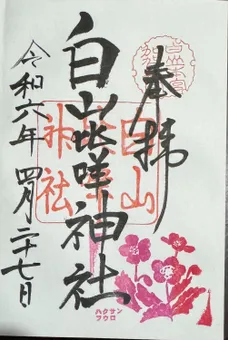 奉拝
白山比咩神社
令和六年四月二十七日
白山
神社
ハクサン
フウロ